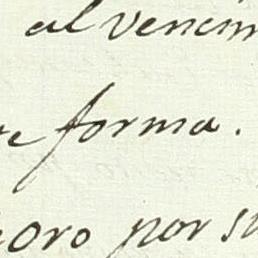 al vencim
te forma.
oro por su